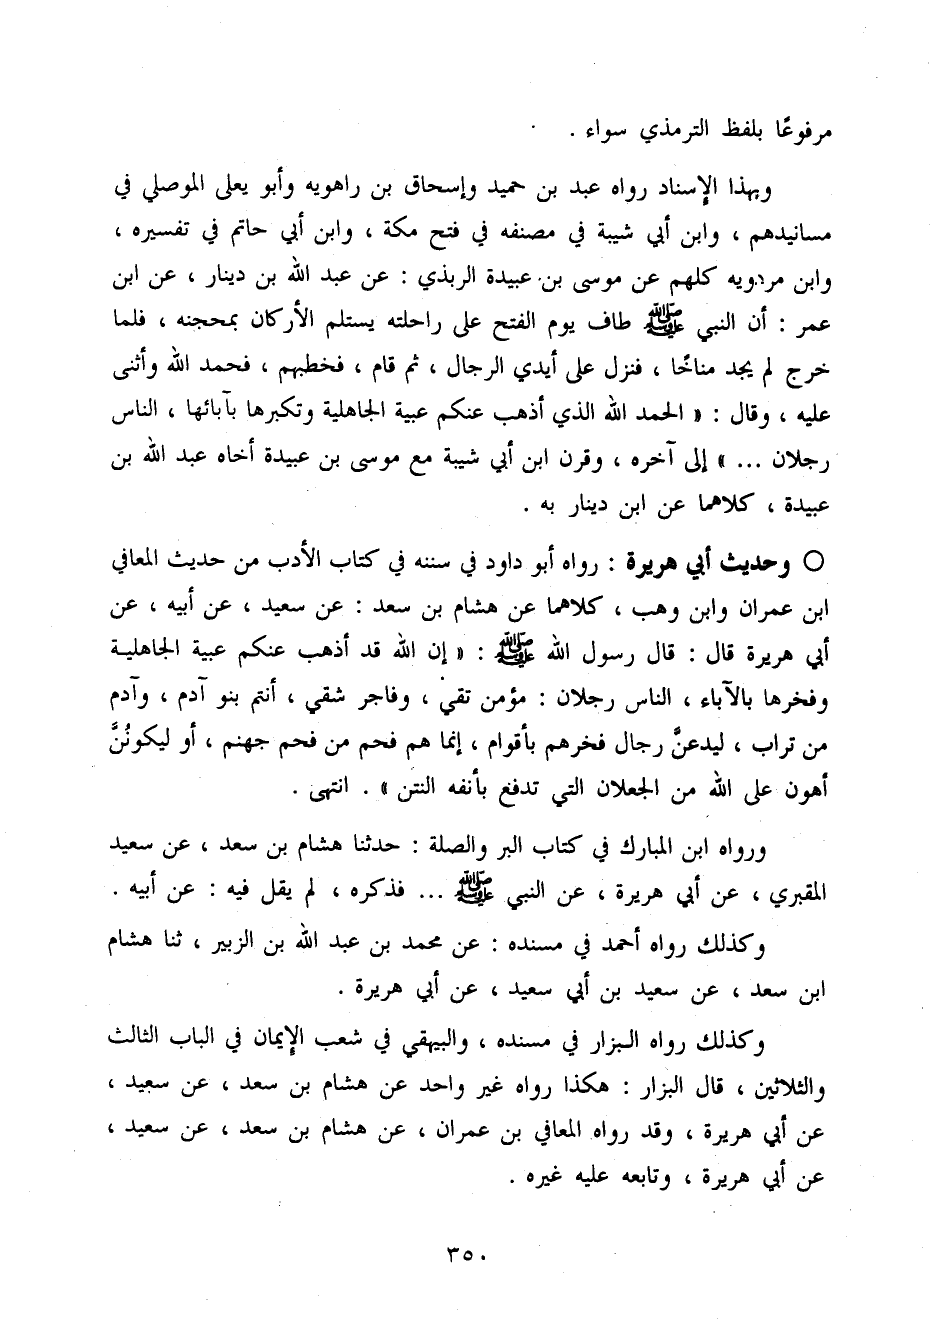 مرفوعًا بلفظ الترمذي سواء .
وبهذا الإسناد رواه عبد بن حميد وإسحاق بن راهويه وأبو يعلى الموصلي في
مسانيدهم ، وابن أبي شيبة في مصنفه في فتح مكة ، وابن أبي حاتم في تفسيره ،
وابن مردويه كلهم عن موسى بن عبيدة الربذي : عن عبد الله بن دينار ، عن ابن
عمر : أن النبي ﷺ طاف يوم الفتح على راحلته يستلم الأركان بمحجنه ، فلما
خرج لم يجد مناخًا ، فنزل على أيدي الرجال ، ثم قام ، فخطبهم ، فحمد الله وأثنى
عليه ، وقال : « الحمد الله الذي أذهب عنكم عبية الجاهلية وتكبرها بآبائها ، الناس
رجلان ... » إلى آخره ، وقرن ابن أبي شيبة مع موسى بن عبيدة أخاه عبد الله بن
عبيدة ، كلاهما عن ابن دينار به .
○ وحديث أبي هريرة : رواه أبو داود في سننه في كتاب الأدب من حديث المعافي
ابن عمران وابن وهب ، كلاهما عن هشام بن سعد : عن سعيد ، عن أبيه ، عن
أبي هريرة قال : قال رسول الله ﷺ : « إن الله قد أذهب عنكم عبية الجاهلية
وفخرها بالآباء ، الناس رجلان : مؤمن تقي ، وفاجر شقي ، أنتم بنو آدم ، وآدم
من تراب ، ليدعنَّ رجال فخرهم بأقوام ، إنما هم فحم من فحم جهنم ، أو ليكونُنَّ
أهون على الله من الجعلان التي تدفع بأنفه النتن » . انتهى .
ورواه ابن المبارك في كتاب البر والصلة : حدثنا هشام بن سعد ، عن سعيد
المقبري ، عن أبي هريرة ، عن النبي ﷺ ... فذكره ، لم يقل فيه : عن أبيه .
وكذلك رواه أحمد في مسنده : عن محمد بن عبد الله بن الزبير ، ثنا هشام
ابن سعد ، عن سعيد بن أبي سعيد ، عن أبي هريرة .
وكذلك رواه البزار في مسنده ، والبيهقي في شعب الإيمان في الباب الثالث
والثلاثين ، قال البزار : هكذا رواه غير واحد عن هشام بن سعد ، عن سعيد ،
عن أبي هريرة ، وقد رواه المعافي بن عمران ، عن هشام بن سعد ، عن سعيد ،
عن أبي هريرة ، وتابعه عليه غيره .
٣٥٠